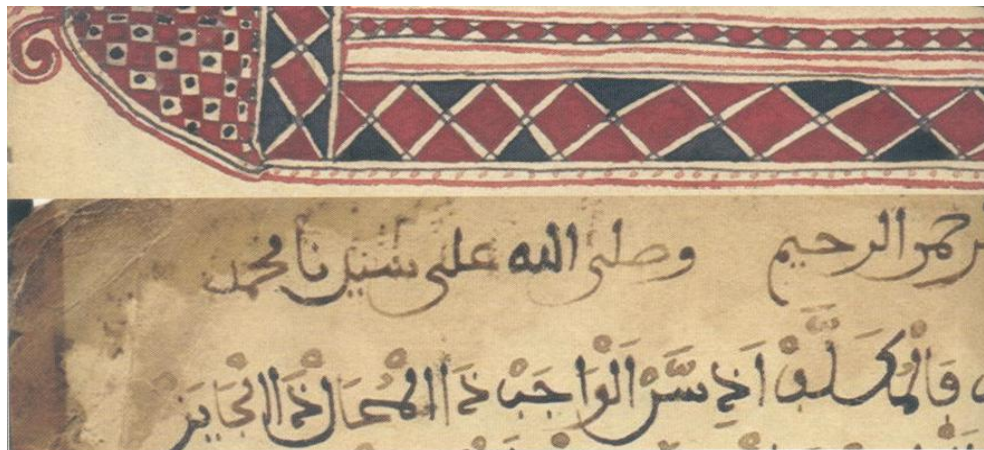 الرحيم وصلى الله على سيدنا محمد
فَالْمُكَلَّفْ اَذِسَّرْ الْوَاجَبْ ذَا الْمُحَالْ ذَا الْجَايَزْ